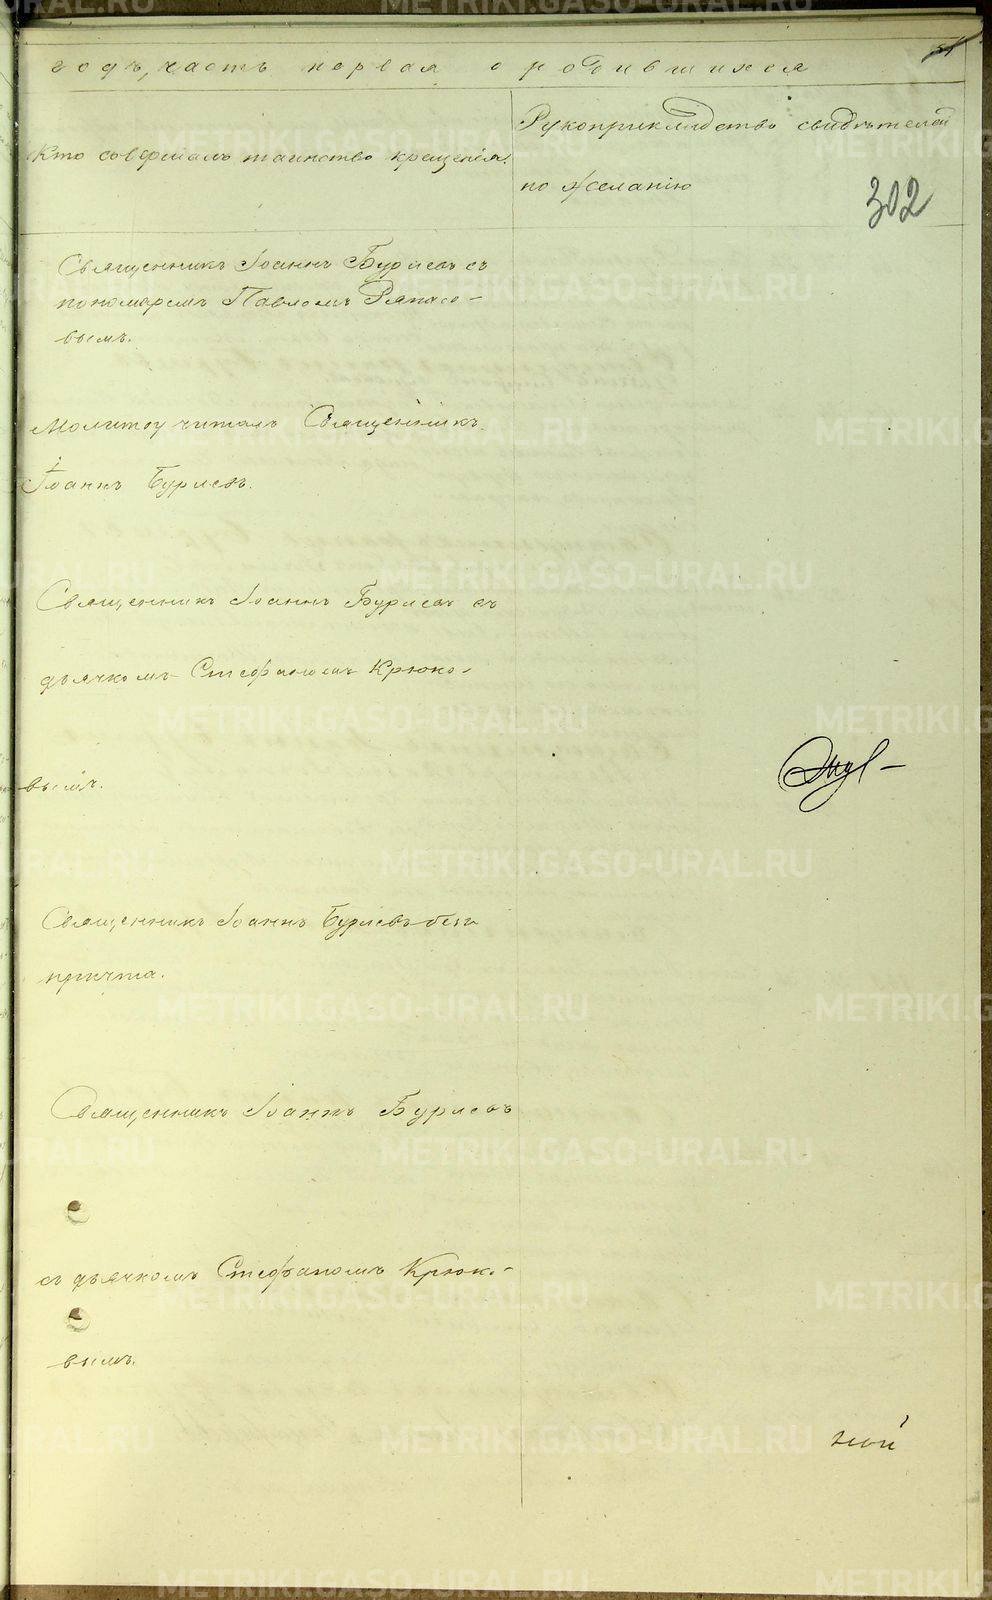 годъ, часть первая о родившихся
Кто совершалъ таинство крещенія.
Рукоприкладство свидѣтелей
по желанію
302
Священникъ Іоаннъ Бурлевъ съ
пономаремъ Павломъ Ряпасо-
вымъ.
Молитву читалъ Священникъ
Іоаннъ Бурлевъ.
Священникъ Іоаннъ Бурлевъ съ
дьячкомъ Стефаномъ Крюко-
вымъ.
Священникъ Іоаннъ Бурлевъ безъ
причта.
Священникъ Іоаннъ Бурлевъ
съ дьячкомъ Стефаномъ Крюко-
вымъ.
ной
METRIKI.GASO-URAL.RU